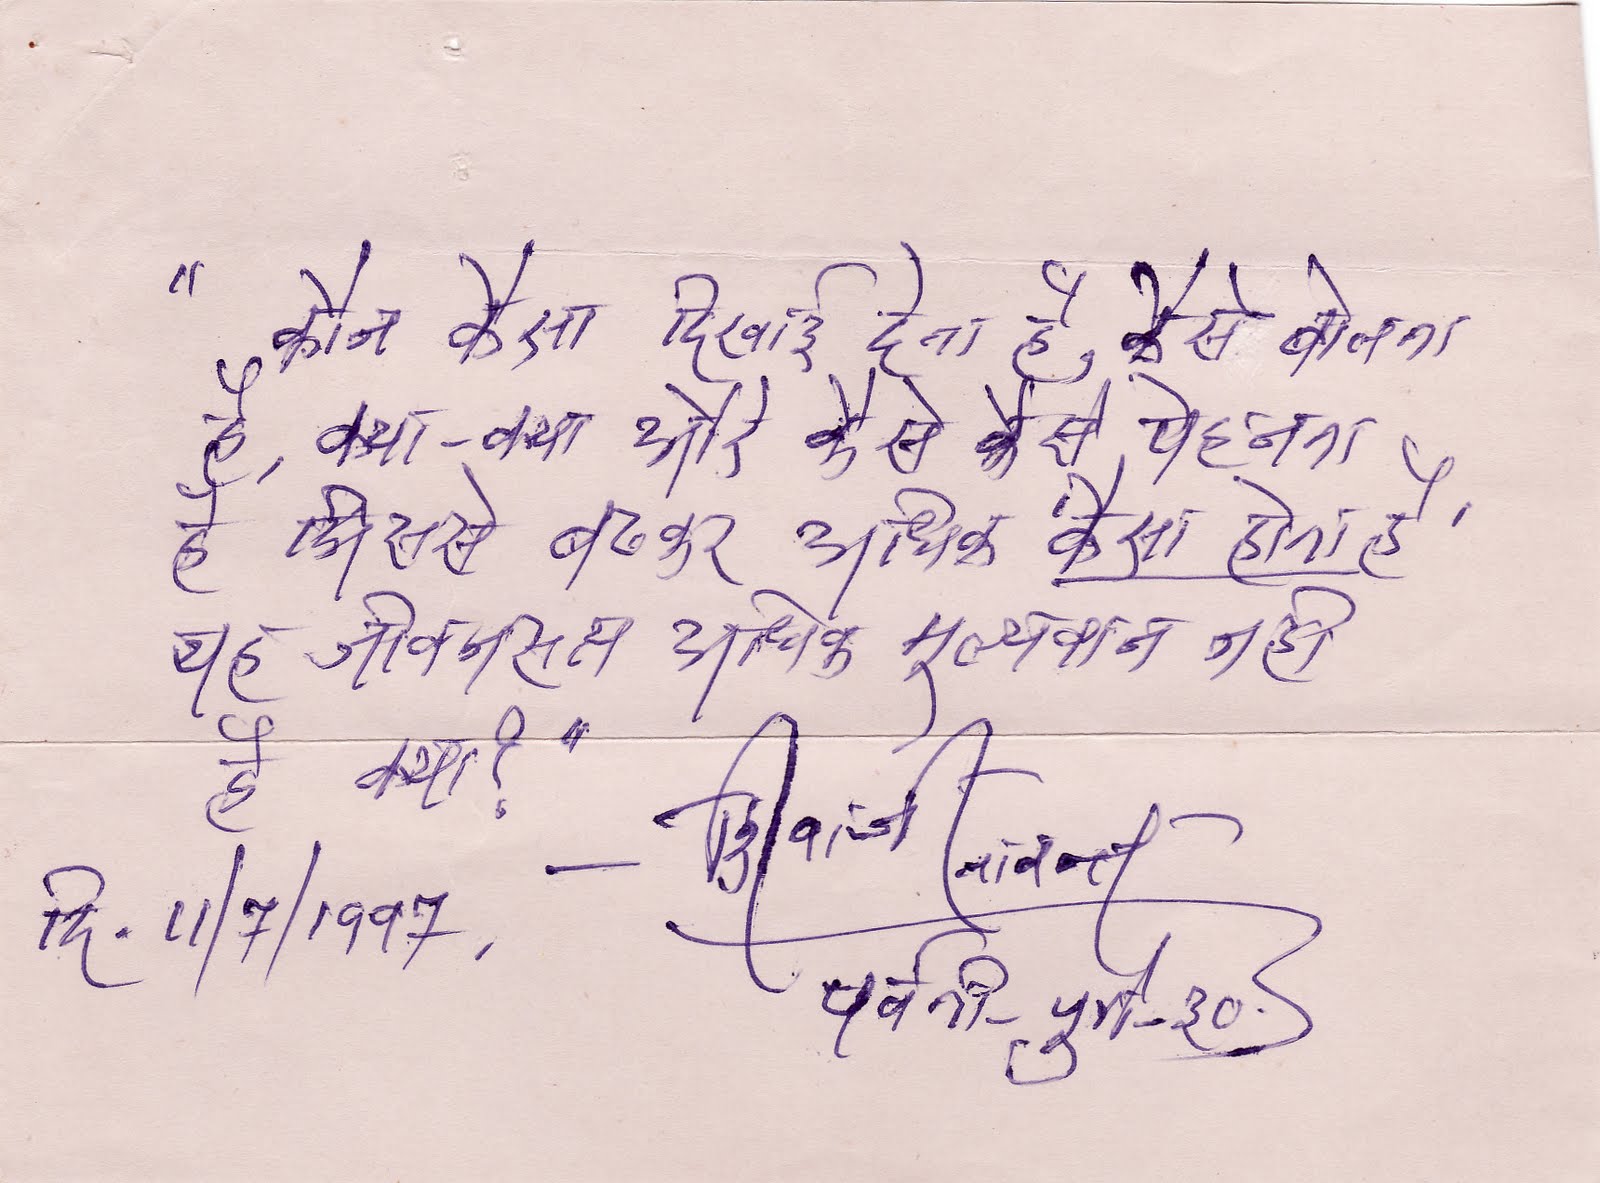 "कौन कैसा दिखाई देता है, कैसे बोलता
है, क्या-क्या और कैसे कैसे पेहनता
है जिससे बढकर अधिक कैसा होता है'
यह जीवनसत्त्व अधिक मूल्यवान नही
है क्या?"
— शिवाजी सावंत
दि. 11/7/1997.
पर्वती-पुणे-३०.